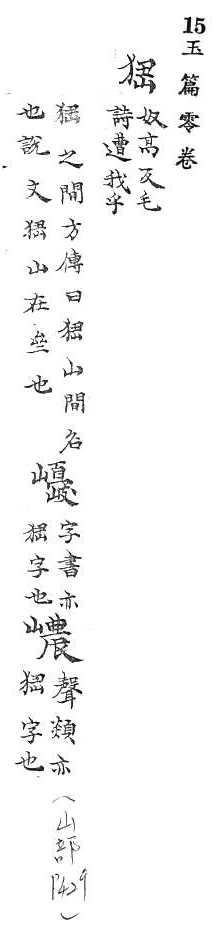 15玉篇零卷
峱
奴高反毛
詩遭我乎
峱之間方傳曰峱山間名
也說文峱山在亝也
巎
字書亦
峱字也
嶩
聲類亦
峱字也
(山部P429)